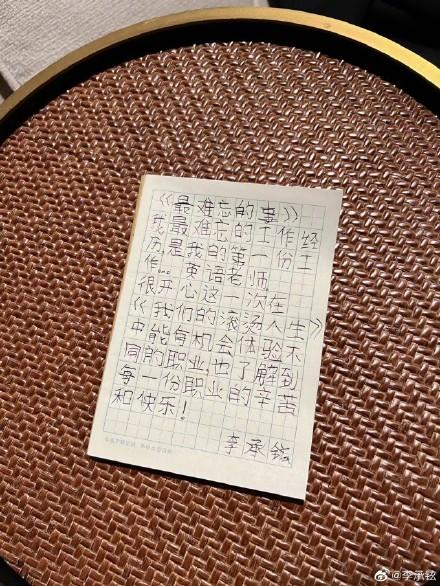 《最难忘的事》
我最难忘的工作经
历是我的第一份工
作... 英语老师
很开心这一次在
《我们的滚汤人生》
中能有机会体验不
同的职业,也了解到
每一份职业的辛苦
和快乐!
李承铉
@李承铉